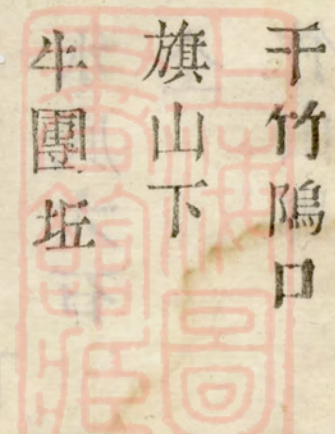 千竹隖口
旗山下
牛團坵